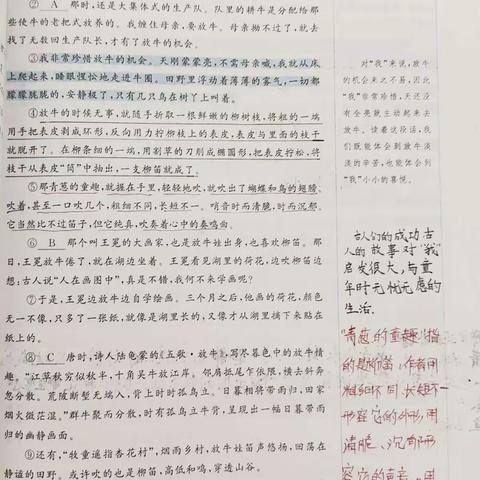 ② A 那时,还是大集体式的生产队。队里的耕牛是分配给那
些使牛的老把式放养的。我缠住母亲,要放牛。母亲拗不过了,就去
找了无数回生产队长,才有了放牛的机会。
③我非常珍惜放牛的机会。天刚蒙蒙亮,不需母亲喊,我就从床
上爬起来,睡眼惺忪地走进牛圈。田野里浮动着薄薄的雾气,一切都
朦朦胧胧的,安静极了,只有几只鸟在树丫上叫着。
④放牛的时候无事,就随手折取一根鲜嫩的柳树枝,将粗的一端
用手把表皮剥成环形,反向用力拧柳枝上的表皮,表皮与里面的枝干
就脱开了。在柳条细的一端,用割草的刀削成椭圆形,把表皮拧松,将
枝干从表皮“筒”中抽出,一支柳笛就成了。
⑤那青葱的童趣,就握在手里,轻轻地吹,就吹出了蝴蝶和鸟的翅膀,
吹着,甚至一口吹几个,粗细不同,长短不一。哨音时而清脆,时而沉郁。
它当然比不过笛子,但它纯真,吹奏着心中的奏鸣曲。
⑥ B 那个叫王冕的大画家,也是放牛娃出身,也喜欢柳笛。那
日,王冕放牛倦了,就在湖边坐着。王冕看见湖里的荷花,吹响柳笛边
想:古人说“人在画图中”,真是不错,我何不来学画呢?
⑦于是,王冕边放牛边自学绘画。三个月之后,他画的荷花,颜色
无一不像,只多了一张纸,就像是湖里长的,又像才从湖里摘下来贴在
纸上的。
⑧ C 唐时,诗人陆龟蒙的《五歌·放牛》,写尽暮色中的放牛情
趣。“江草秋穷似秋半,十角吴牛放江岸。邻肩抵尾乍依隈,横去斜奔
忽分散。荒陂断堑无端入,背上时时孤鸟立。日暮相将带雨归,田家
烟火微茫湿。”群牛聚而分散,时有孤鸟立牛背,呈现出一幅日暮带雨
归的幽静画面。
⑨还有,“牧童遥指杏花村”,烟雨乡村,放牛娃笛声悠扬,回荡在
静谧的田野。或许吹的也是柳笛,高低和鸣,穿透山谷。
对“我”来说,放牛
的机会来之不易,因此
“我”非常珍惜,天还没
有全亮就主动起来去
放牛。读着这段话,我
们既能体会到放牛淡
淡的辛苦,也能体会到
“我”小小的喜悦。
古人们的成功古
人的故事对“我”
启发很大,与童
年时无忧无虑的
生活.
“青葱的童趣”指
的是柳笛,作者用
粗细不同、长短不一
形容它的外形,用
清脆、沉郁形
容它的声音,用